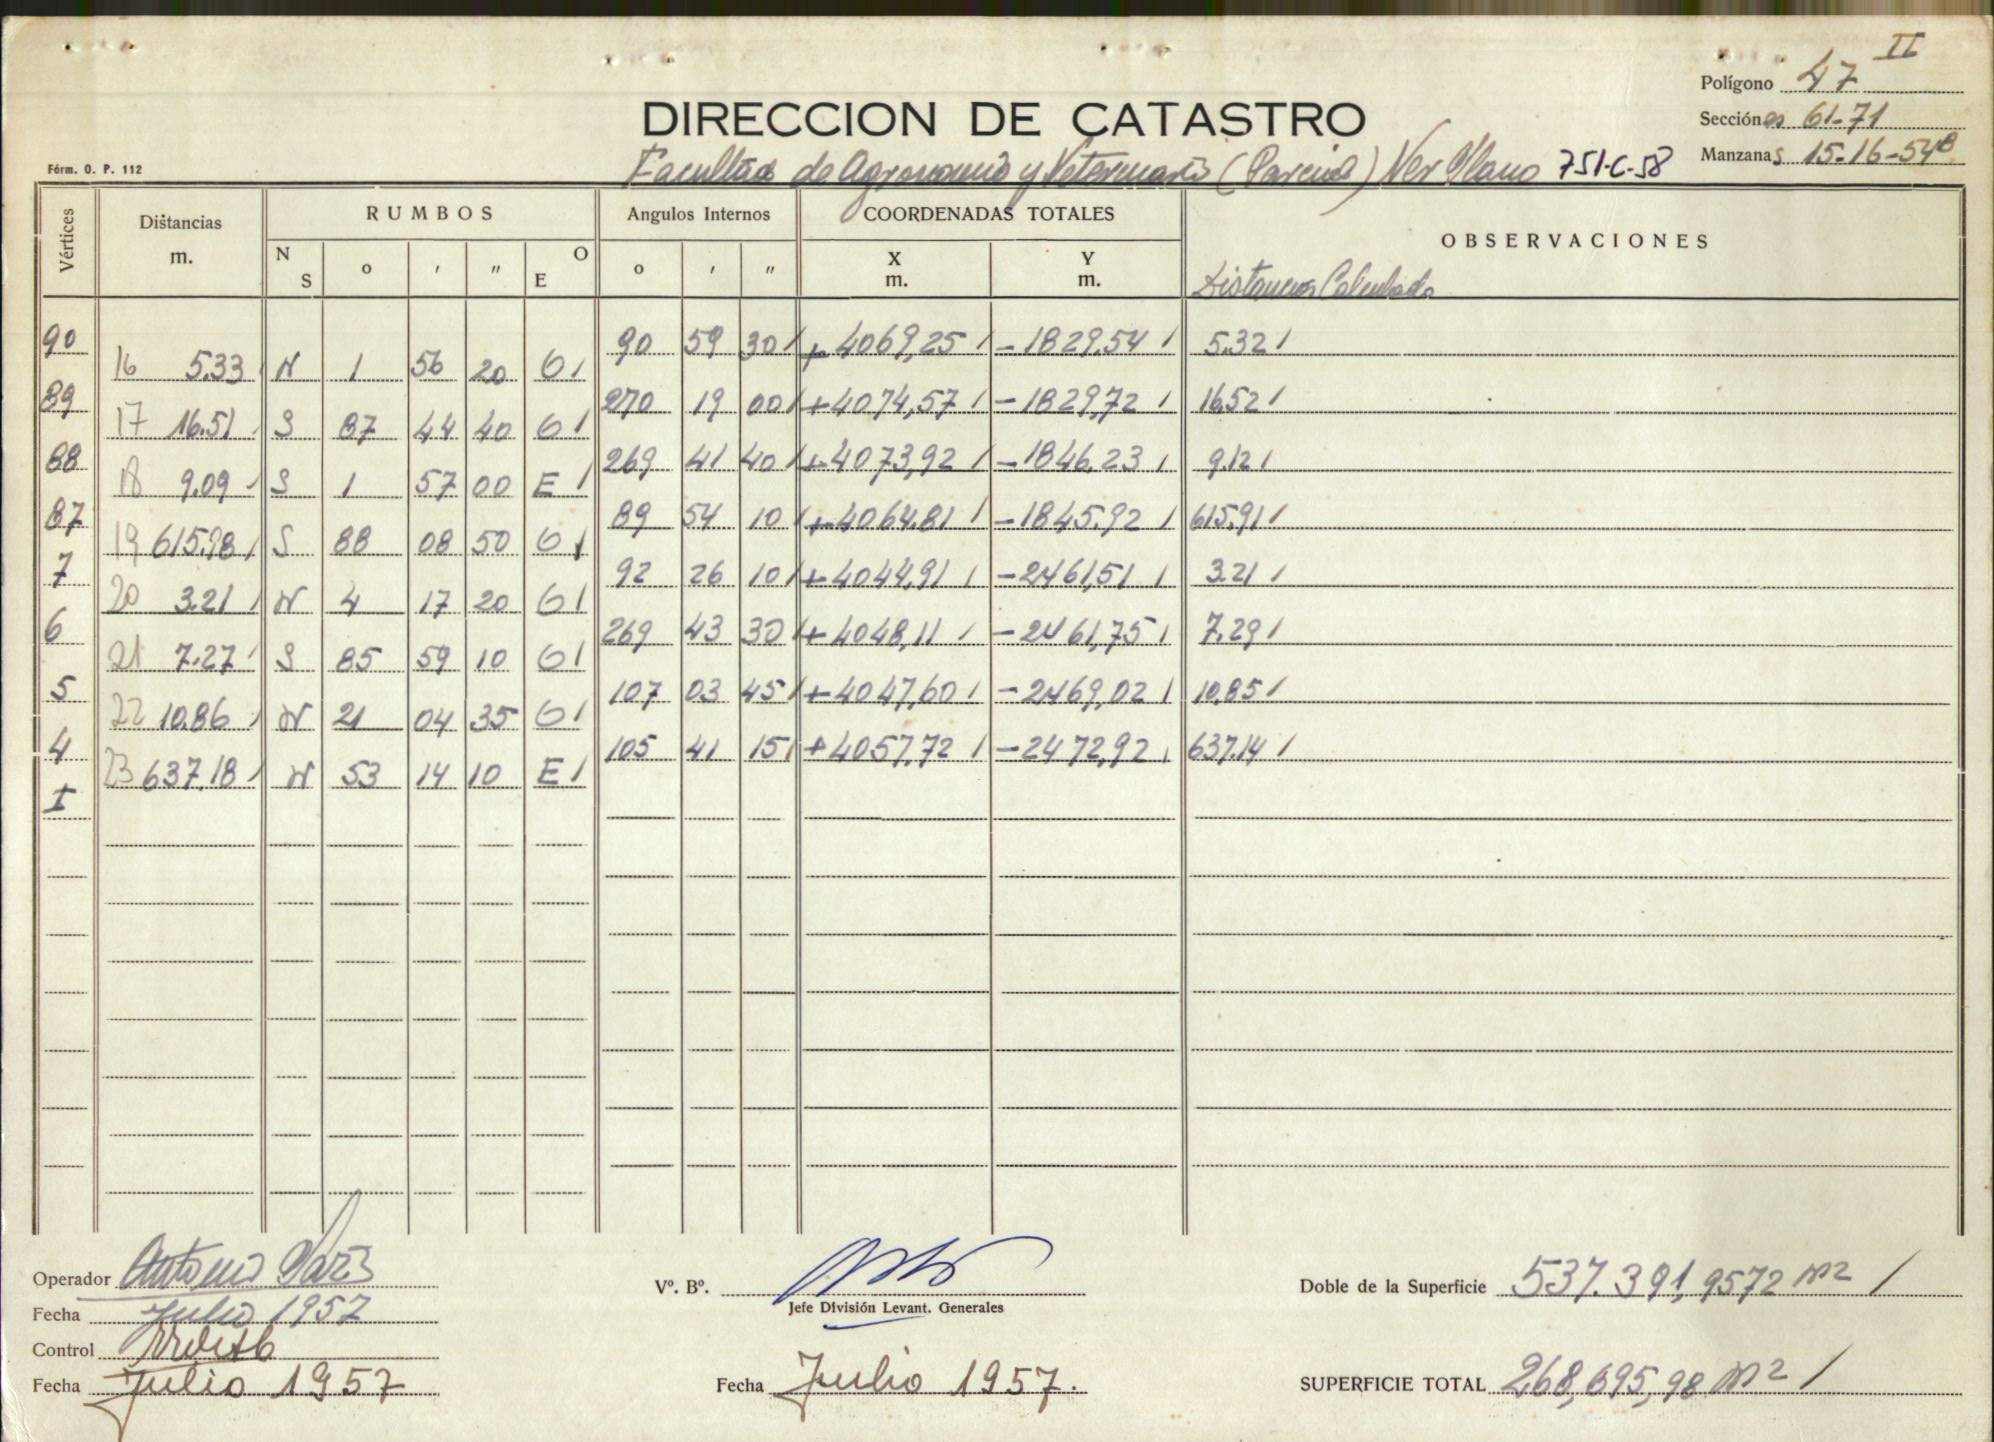 II
Polígono 47
DIRECCION DE CATASTRO
Secciónes 61-71
Manzanas 15-16-54B
Fórm. O. P. 112
Facultad de Agronomia y Veterinaria (Parcial) Ver Plano 751-C-58
Vértices Distancias m. RUMBOS N S o ' " E O Angulos Internos o ' " COORDENADAS TOTALES X m. Y m. OBSERVACIONES
Distancias Calculada
90 90 59 30 +4069,25 -1829,54 5.32
16 5.33 N 1 56 20 O
89 270 19 00 +4074,57 -1829,72 16.52
17 16.51 S 87 44 40 O
88 269 41 40 +4073,92 -1846.23 9.12
18 9.09 S 1 57 00 E
87 89 54 10 +4064.81 -1845.92 615.91
19 615.98 S 88 08 50 O
7 92 26 10 +4044,91 -2461,51 3.21
20 3.21 N 4 17 20 O
6 269 43 30 +4048,11 -2461,75 7.29
21 7.27 S 85 59 10 O
5 107 03 45 +4047,60 -2469,02 10.85
22 10.86 N 21 04 35 O
4 105 41 15 +4057,72 -2472,92 637.14
23 637.18 N 53 14 10 E
I
Operador Antonio
Fecha Julio 1957
Control
Fecha Julio 1957
Vº. Bº.
Jefe División Levant. Generales
Fecha Julio 1957.
Doble de la Superficie 537.391,9572 m2
SUPERFICIE TOTAL 268,695,98 m2